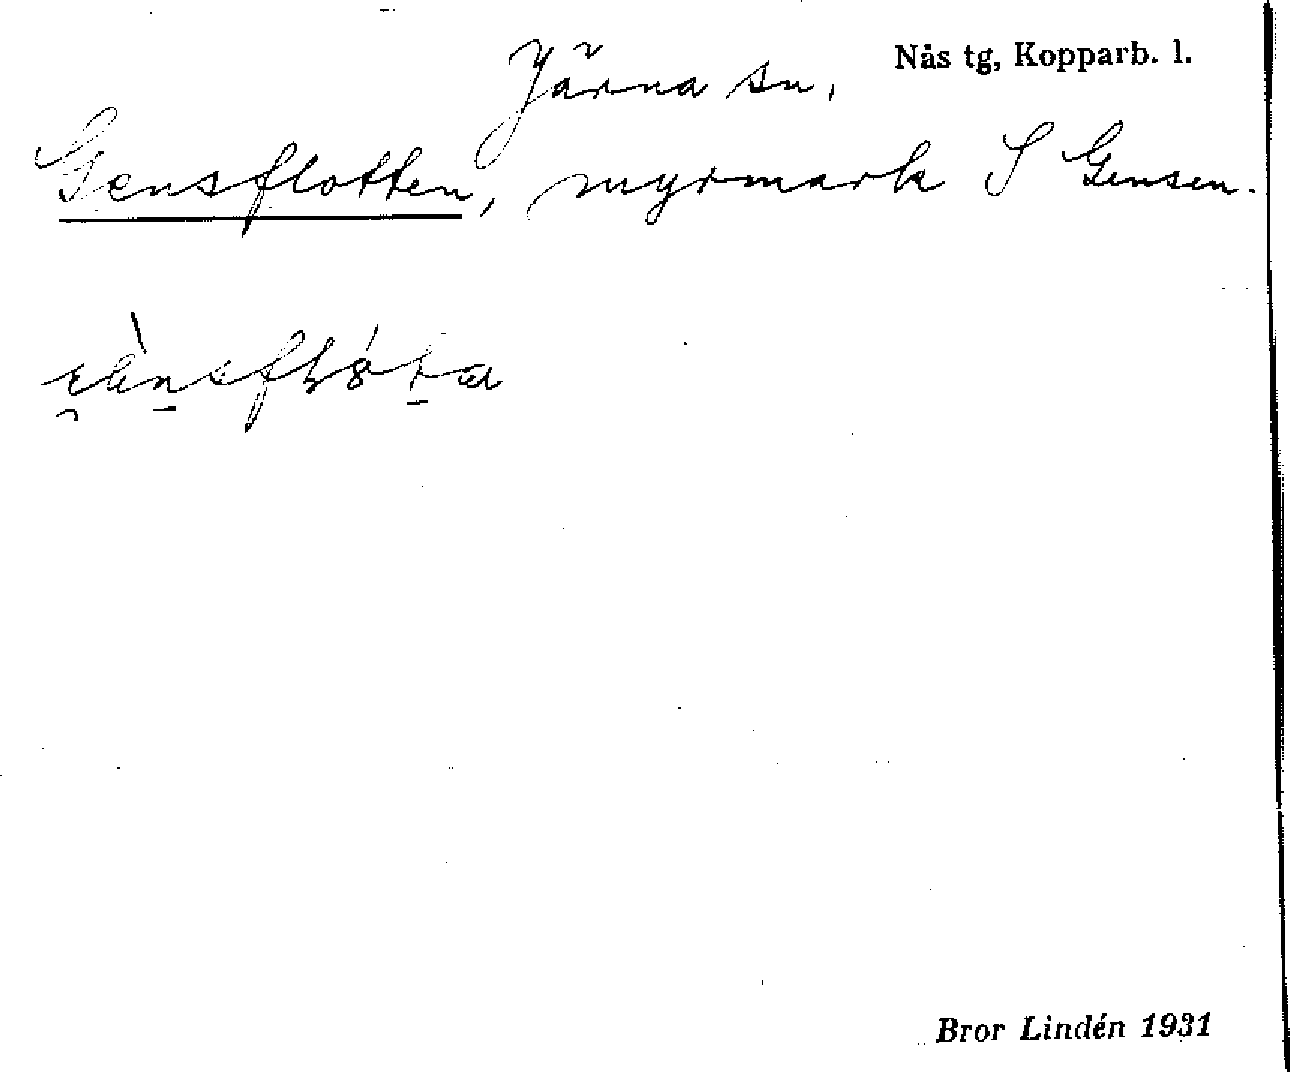 Järna sn,
Nås tg, Kopparb. l.
Gensflotten, myrmark S Gensen.
Bror Lindén 1931